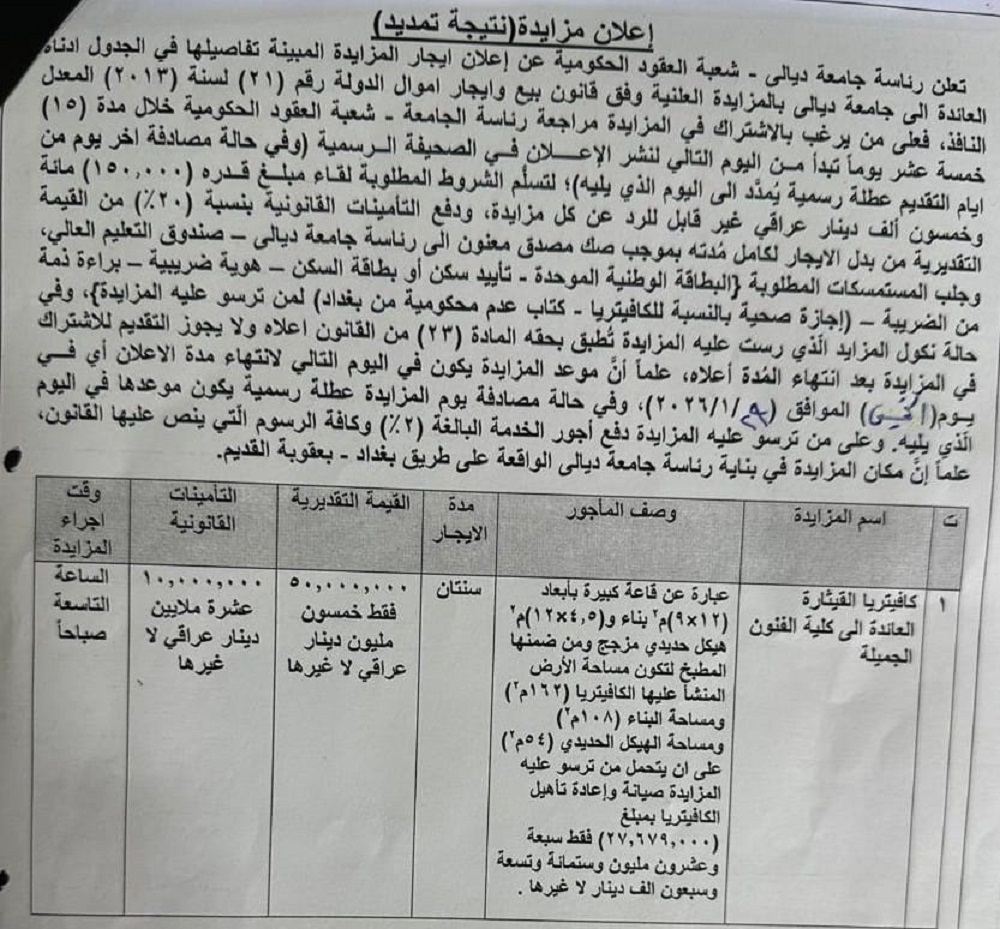 إعلان مزايدة(نتيجة تمديد)
تعلن رئاسة جامعة ديالى - شعبة العقود الحكومية عن إعلان ايجار المزايدة المبينة تفاصيلها في الجدول ادناه
العائدة الى جامعة ديالى بالمزايدة العلنية وفق قانون بيع وايجار اموال الدولة رقم (٢١) لسنة (٢٠١٣) المعدل
النافذ، فعلى من يرغب بالاشتراك في المزايدة مراجعة رئاسة الجامعة - شعبة العقود الحكومية خلال مدة (١٥)
خمسة عشر يوماً تبدأ من اليوم التالي لنشر الإعلان في الصحيفة الرسمية (وفي حالة مصادفة اخر يوم من
ايام التقديم عطلة رسمية يُمدَّد الى اليوم الذي يليه)؛ لتسلُّم الشروط المطلوبة لقاء مبلغ قدره (١٥٠,٠٠٠) مائة
وخمسون ألف دينار عراقي غير قابل للرد عن كل مزايدة، ودفع التأمينات القانونية بنسبة (٢٠٪) من القيمة
التقديرية من بدل الايجار لكامل مُدته بموجب صك مصدق معنون الى رئاسة جامعة ديالى – صندوق التعليم العالي،
وجلب المستمسكات المطلوبة {البطاقة الوطنية الموحدة - تأييد سكن أو بطاقة السكن – هوية ضريبية – براءة ذمة
من الضريبة – (إجازة صحية بالنسبة للكافيتريا - كتاب عدم محكومية من بغداد) لمن ترسو عليه المزايدة}، وفي
حالة نكول المزايد الَّذي رست عليه المزايدة تُطبق بحقه المادة (٢٣) من القانون اعلاه ولا يجوز التقديم للاشتراك
في المزايدة بعد انتهاء المُدة أعلاه، علماً أنَّ موعد المزايدة يكون في اليوم التالي لانتهاء مدة الاعلان أي في
يوم( ) الموافق ( /٢٠٢٦/١)، وفي حالة مصادفة يوم المزايدة عطلة رسمية يكون موعدها في اليوم
الَّذي يليه. وعلى من ترسو عليه المزايدة دفع أجور الخدمة البالغة (٢٪) وكافة الرسوم الَّتي ينص عليها القانون،
علماً إنَّ مكان المزايدة في بناية رئاسة جامعة ديالى الواقعة على طريق بغداد - بعقوبة القديم.
ت
اسم المزايدة
وصف المأجور
مدة
الايجار
القيمة التقديرية
التأمينات
القانونية
وقت
اجراء
المزايدة
١
كافيتريا القيثارة
العائدة الى كلية الفنون
الجميلة
عبارة عن قاعة كبيرة بأبعاد
(٩×١٢)م٢ بناء و(١٢×٤,٥)م٢
هيكل حديدي مزجج ومن ضمنها
المطبخ لتكون مساحة الأرض
المنشأ عليها الكافيتريا (١٦٢م٢)
ومساحة البناء (١٠٨م٢)
ومساحة الهيكل الحديدي (٥٤م٢)
على ان يتحمل من ترسو عليه
المزايدة صيانة وإعادة تأهيل
الكافيتريا بمبلغ
(٢٧,٦٧٩,٠٠٠) فقط سبعة
وعشرون مليون وستمائة وتسعة
وسبعون الف دينار لا غيرها .
سنتان
٥٠,٠٠٠,٠٠٠
فقط خمسون
مليون دينار
عراقي لا غيرها
١٠,٠٠٠,٠٠٠
عشرة ملايين
دينار عراقي لا
غيرها
الساعة
التاسعة
صباحاً